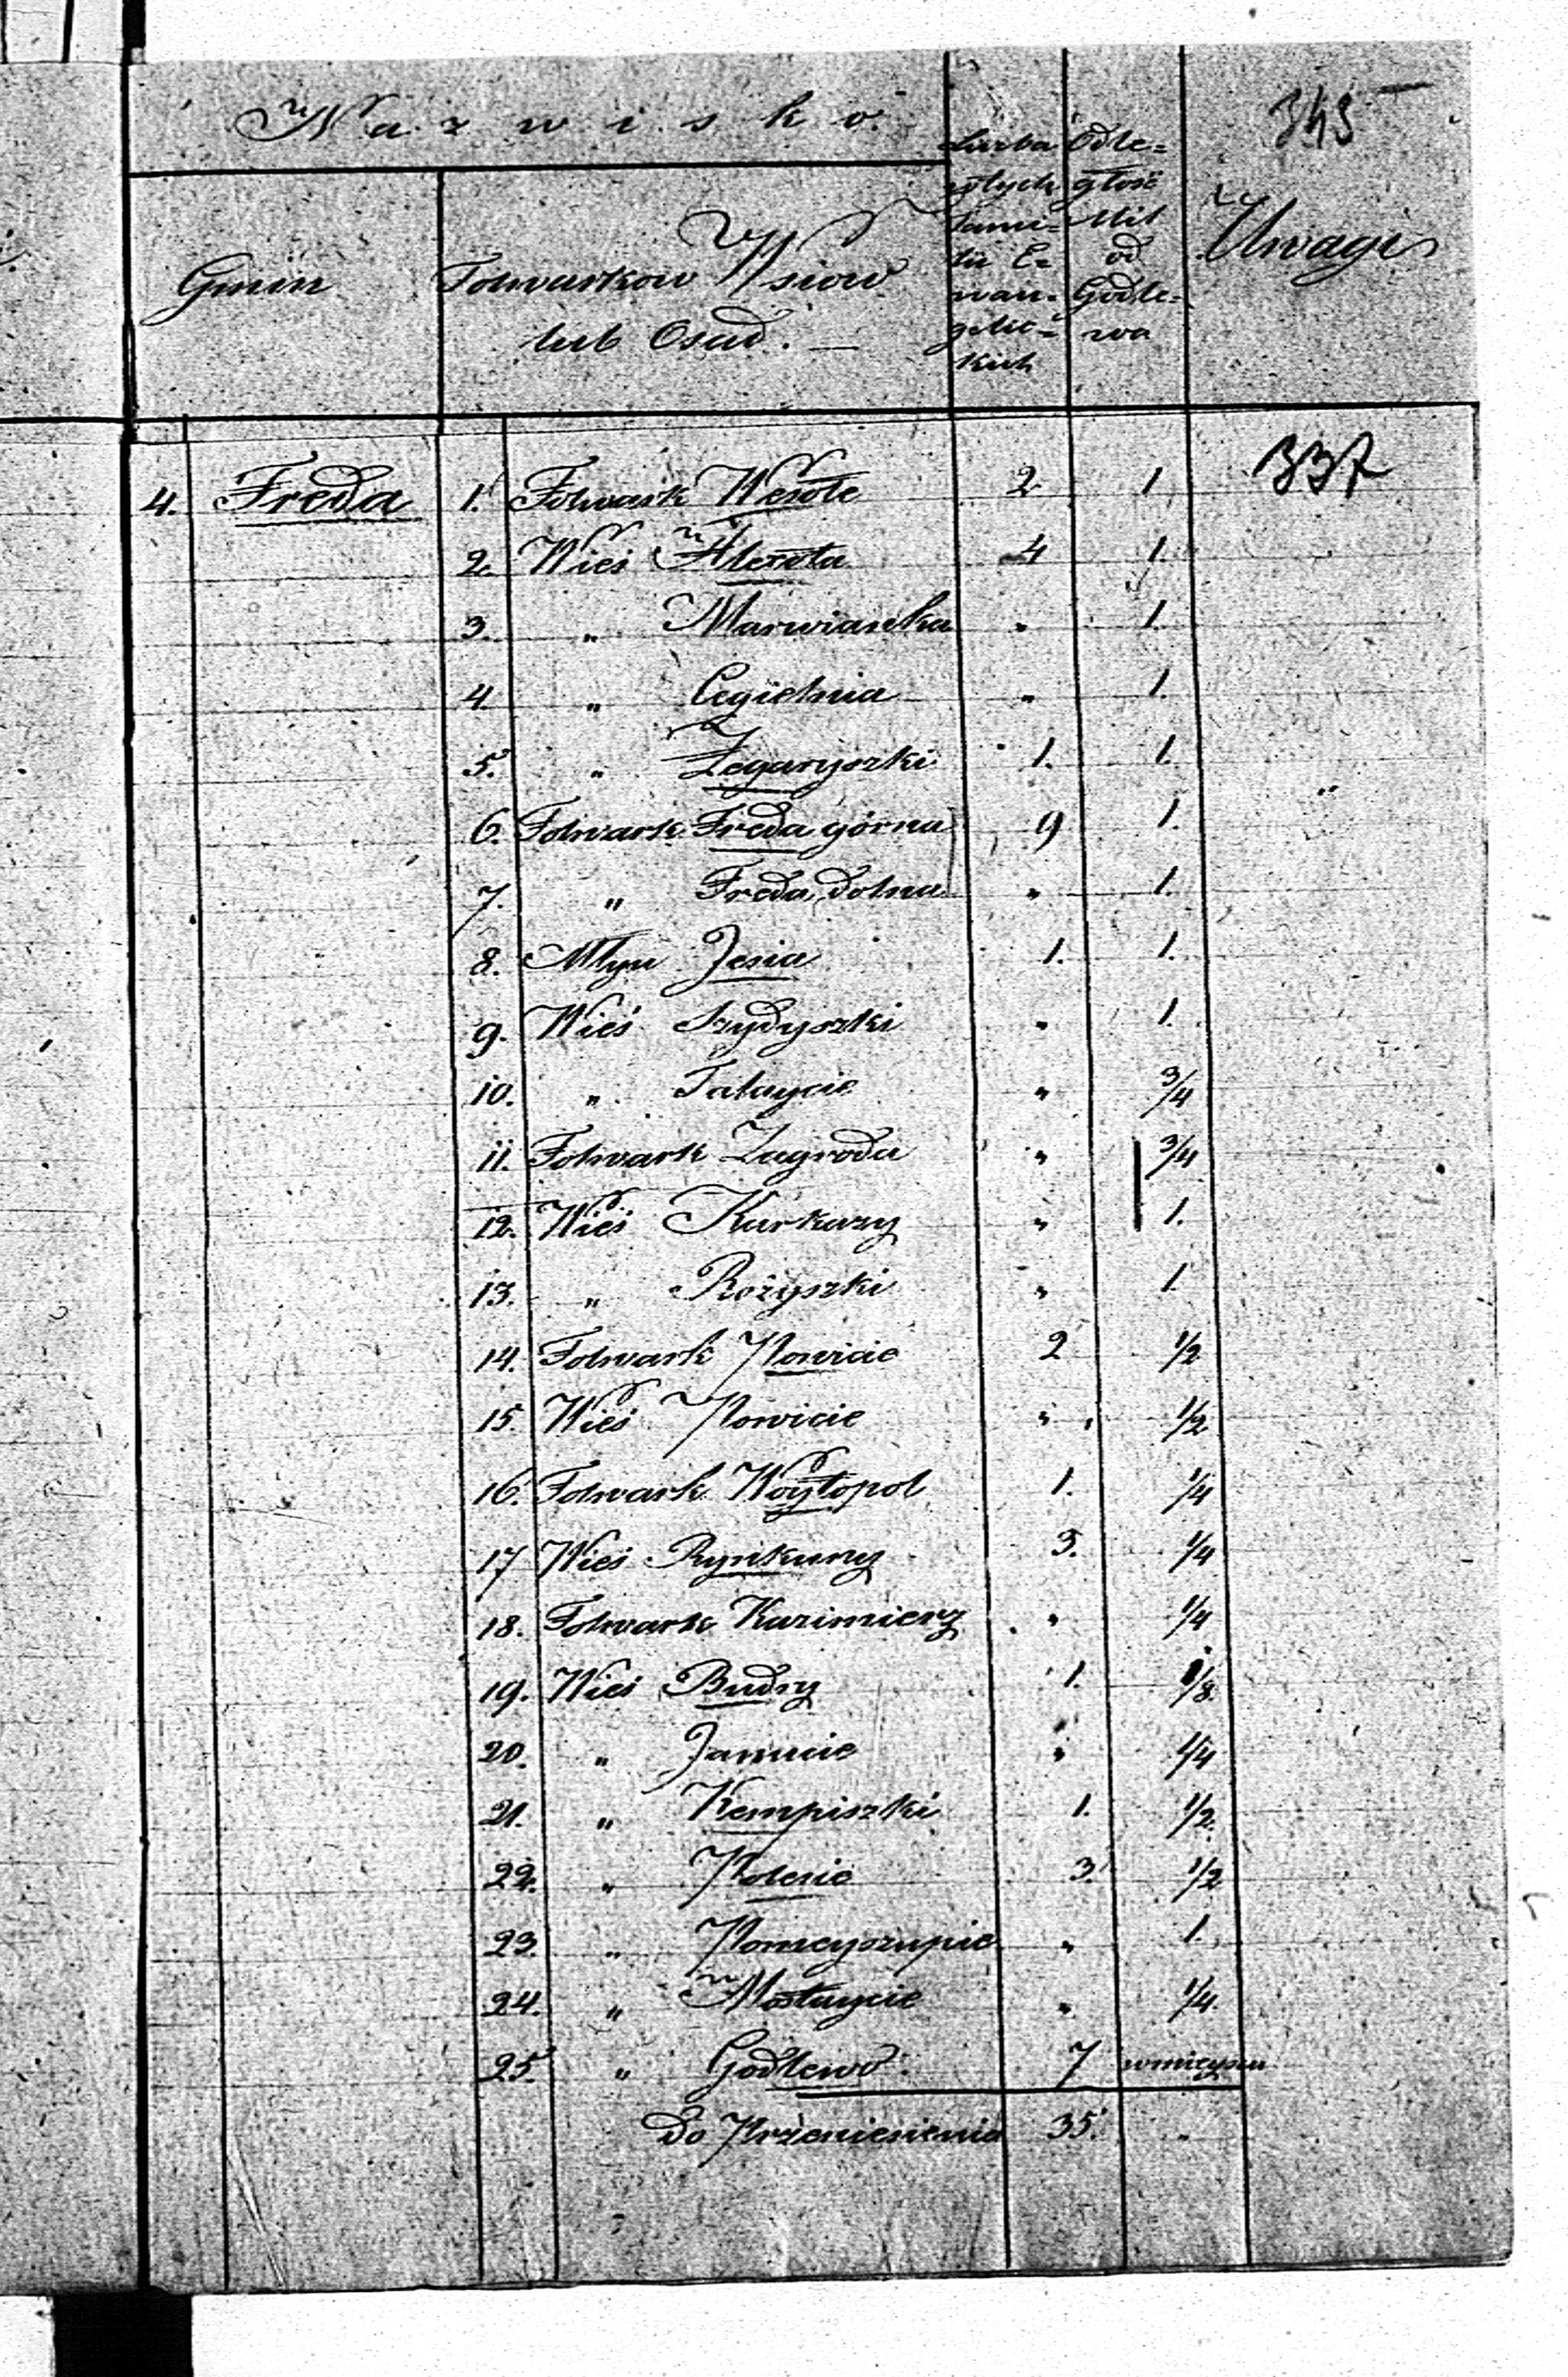 Nazwisko
345
Gmin
Folwarkow Wsiow
lub Osad.
Liczba
Familii E=
wan=
gelic=
kich
Odle=
głość
Mil
od
Godle=
wa
Uwagi
337
4. Freda 1. Folwark Wesołe 2 1
2. Wieś Alexota 4 1.
3. " Marwianka " 1.
4 " Cegielnia " 1.
5. " Żegaryszki 1. 1.
6. Folwark Freda górna 9 1.
7. " Freda dolna " 1.
8. Młyn Jesia 1. 1.
9. Wieś Szydyszki " 1.
10. " Tałaycie " 3/4
11. Folwark Zagroda " 3/4
12. Wieś Karkazy " 1.
13. " Rożyszki " 1.
14. Folwark Powicie 2 1/2
15. Wieś Powicie " 1/2
16. Folwark Woytopol 1. 1/4
17 Wieś Rynkuny 3. 1/4
18. Folwark Kazimierz " 1/4
19. Wieś Budry 1. 1/8
20. " Janucie " 1/4
21. " Kempiszki 1. 1/2
22. " Polesie 3. 1/2
23. " Poniczyszupie " 1.
24. " Mostaycie " 1/4.
25. " Godlewo. 7 w mieyscu
Do Przeniesienia 35. "